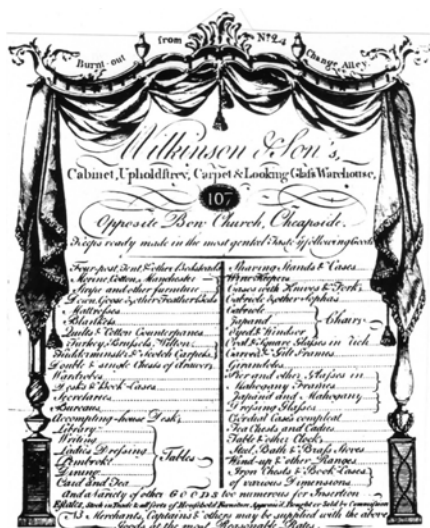 Burnt-out from Nº 24 Change Alley.
Wilkinson & Son's,
Cabinet, Upholstrey, Carpet & Looking Glass Warehouse,
107
Opposite Bow Church, Cheapside.
Keeps ready made in the most genteel Taste yᵉ following Goods
Four-post, Tent & other Bedsteads
Morine, Cotton, Manchester
Stripe and other furniture
Down, Goose & other Feather Beds
Mattrosses
Blankets
Quilts & Cotton Counterpanes
Turkey, Brussels, Wilton,
Kidderminster & Scotch Carpets
Double & single Chests of drawers
Wardrobes
Desks & Book-Cases
Secretaries
Bureaus
Accompting-house Desks
Library
Writing
Ladies Dressing
Pembroke
Dining
Card and Tea
Tables
Shaving Stands & Cases
Cases with Knives & Forks
Cabriole & other Sophas
Cabriole
Japand
Dyed & Windsor
Chairs
Oval & Square Glasses in rich
Carved & Gilt Frames
Girandoles
Pier and other Glasses in
Mahogany Frames
Japand and Mahogany
Dressing Glasses
Cordial Cases compleat
Tea Chests and Cadies
Table & other Clocks
Steel, Bath & Brass Stoves
Wind-up & other Ranges
Iron Chests & Book Cases
of various Dimensions
And a Variety of other GOODS too numerous for Insertion
Estates, Stock in Trade & all sorts of Houshold Furniture Appraised, Bought or Sold by Commission
NB Merchants, Captains & others may be supplied with the above
Goods at the most Reasonable Rates